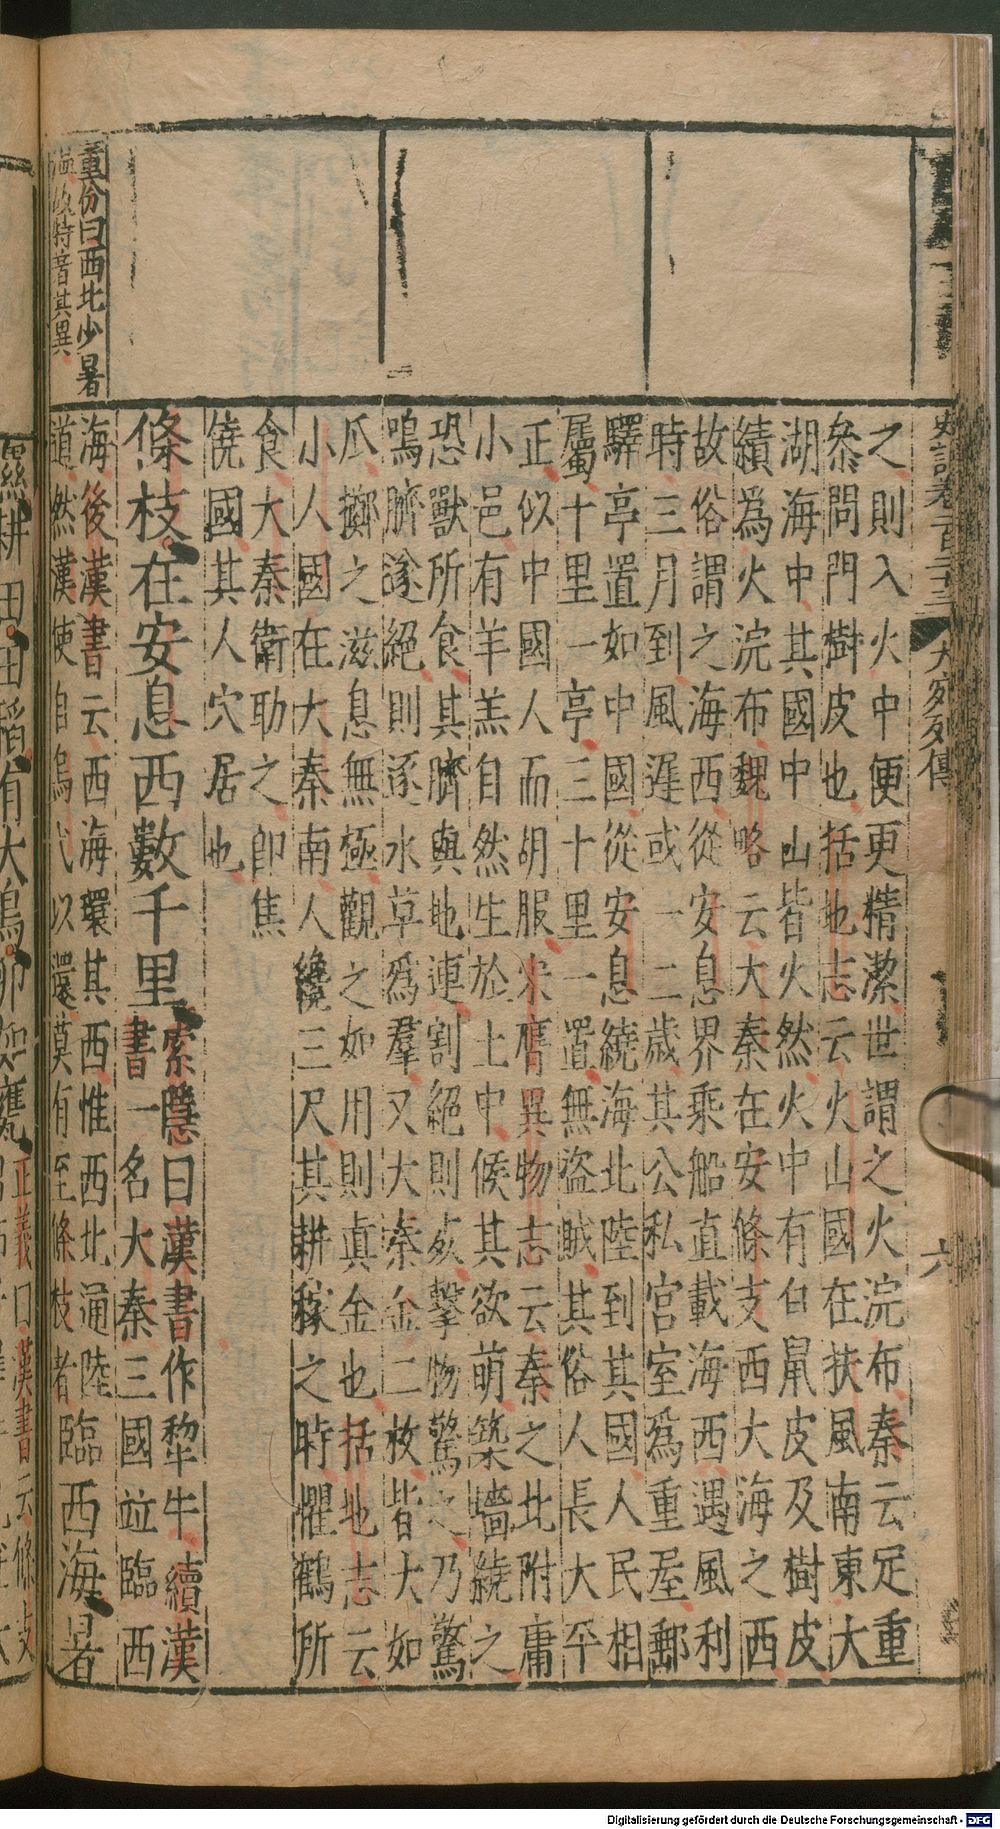 史記卷一百二十三 大宛列傳
六
之則入火中便更精潔世謂之火浣布秦云足重
叅問門樹皮也括地志云火山國在扶風南東大
湖海中其國中山皆火然火中有白鼠皮及樹皮
績爲火浣布魏略云大秦在安條支西大海之西
故俗謂之海西從安息界乘船直載海西遇風利
時三月到風遲或一二歲其公私宮室爲重屋郵
驛亭置如中國從安息繞海北陸到其國人民相
屬十里一亭三十里一置無盜賊其俗人長大平
正似中國人而胡服宋膺異物志云秦之北附庸
小邑有羊羔自然生於土中候其欲萌築墻繞之
恐獸所食其臍與地連割絕則死擊物驚之乃驚
鳴臍遂絕則逐水草爲羣又大秦金二枚皆大如
瓜擲之滋息無極觀之如用則眞金也括地志云
小人國在大秦南人纔三尺其耕稼之時懼鶴所
食大秦衛助之即焦
僥國其人穴居也
條枝在安息西數千里
索隱曰漢書作犂牛續漢
書一名大秦三國竝臨西
海後漢書云西海環其西惟西北通陸
道然漢使自烏弋以還莫有至條枝者
臨西海暑
董份曰西北少暑
濕故特音其異
濕耕田田稻有大鳥卵如甕
正義曰漢書云條支
Digitalisierung gefördert durch die Deutsche Forschungsgemeinschaft - DFG